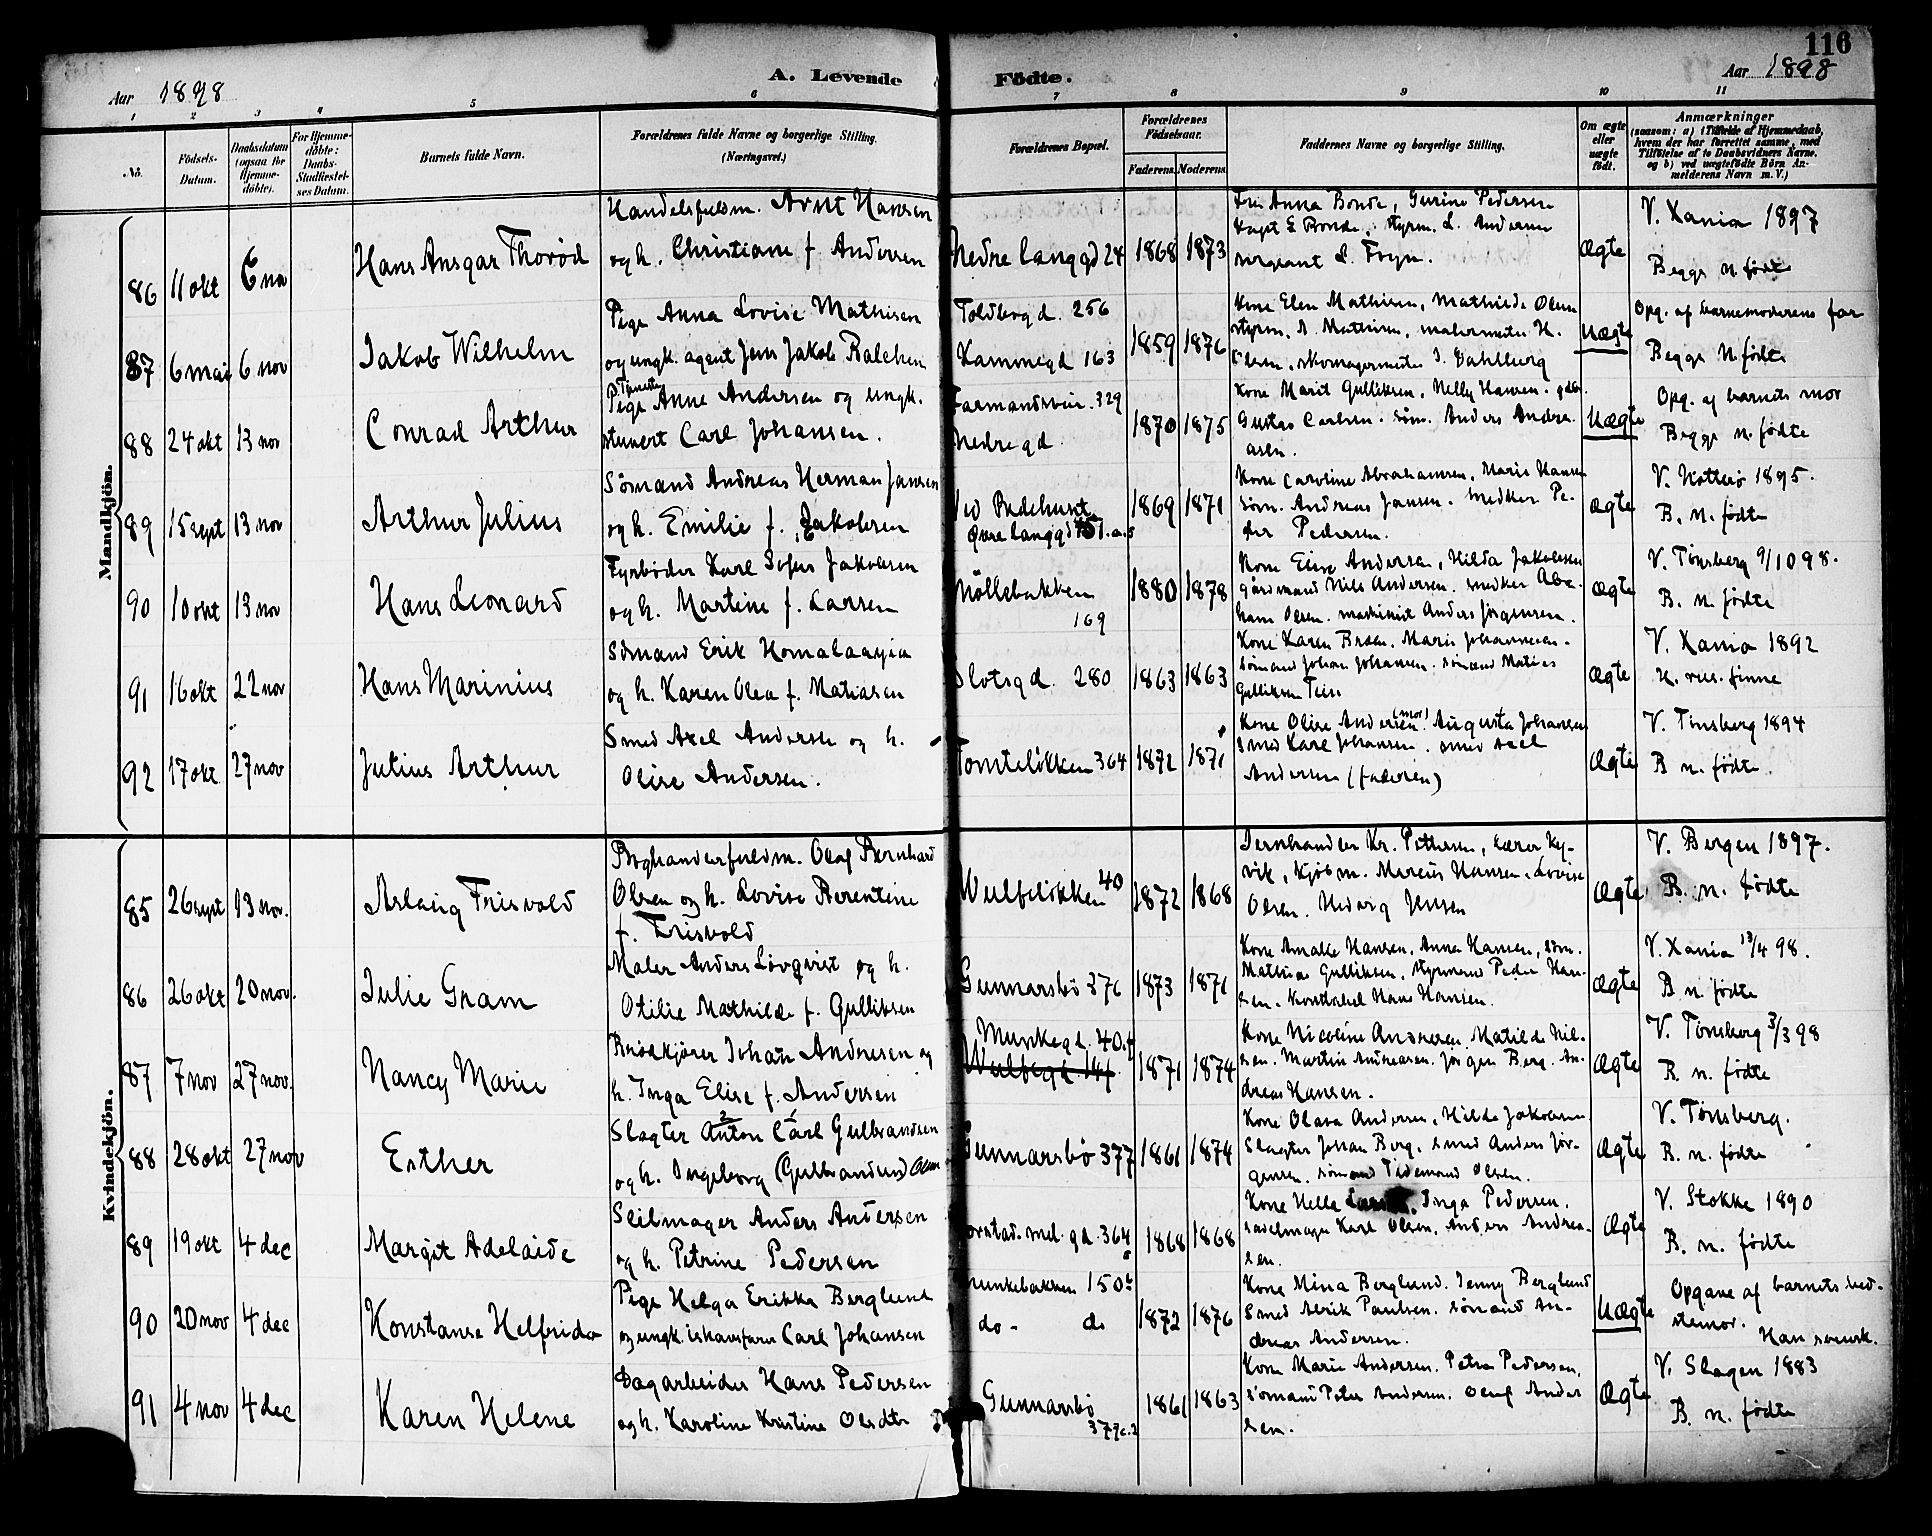 116
Aar 1898
A. Levende Födte.
Aar 1898
1 2 3 4 5 6 7 8 9 10 11
No.
Födsels-Datum.
Daabsdatum (ogsaa for Hjemme-döbte).
For Hjemme-döbte: Daabs-Stadfæstel-ses Datum.
Barnets fulde Navn.
Forældrenes fulde Navne og borgerlige Stilling. (Næringsvei.)
Forældrenes Bopæl.
Forældrenes Födselsaar.
Faderens. Moderens.
Faddernes Navne og borgerlige Stilling.
Om ægte eller uægte födt.
Anmærkninger
(saasom: a) i Tilfælde af Hjemmedaab, hvem der har forrettet samme, med Tilföielse af to Daabsvidners Navne, og b) ved uægtefödte Börn An-melderens Navn m. V.)
Mandkjön.
86 11 okt 6 no Hans Ansgar Thorød
Handelsfuldm. Arnt Hansen
og h. Christiane f. Andersen
Nedre langgd 24 1868 1873
Frk Anna Bonde, Gurine Pedersen
Kapt E Bonde, styrm. L. Andersen
sergeant L. Foyn.
Ægte
V. Xania 1897
Begge n. fødte
87 6 mai 6 nov Jakob Wilhelm
Pige Anna Lovise Mathisen
og ungk. agent Jens Jakob Balchen
Toldbogd. 256
Kammegd 163
1859 1876
Kone Elen Mathisen, Mathilde Olsen
styrm. A. Mathisen, malermester H.
Olsen, skomagermester J. Dahlberg
Uægte
Opg. af barnemoderens far
Begge N. fødte
88 24 okt 13 nov Conrad Arthur
Pige Anne Andersen og ungk.
stuvert Carl Johansen.
Farmandsvei. 329
Nedregd.
1870 1875
Kone Marit Gulliksen, Nelly Hansen. gdbr.
Gustav Carlsen. Søm. Anders Andre-
asen.
Uægte
Opg. af barnets mor
Begge n. fødte
89 15 sept 13 nov Arthur Julius
Sømand Andreas Herman Jansen
og h. Emilie f. Jakobsen
Ved Bedehuset
Øvre langgd 151.a.5
1869 1871
Kone Caroline Abrahamsen, Marie Hansen
Søm. Andreas Jansen. Snedker Pe-
der Pedersen.
Ægte
V. Nøtterø 1895.
B. n. fødte
90 10 okt 13 nov Hans Leonard
Fyrbøder Karl Sofus Jakobsen
og h. Martine f. Larsen
Møllebakken
169
1880 1878
Kone Elise Andersen, Hilda Jakobsen
gårdmand Nils Andersen. snedker Abra-
ham Olsen. maskinist Anders Jørgensen.
Ægte
V. Tønsberg 9/10 98.
B. n. fødte
91 16 okt 22 nov Hans Marinius
Sømand Erik Homalaaja
og h. Karen Olea f. Matiasen
Slotsgd. 280 1863 1863
Kone Karen Braen. Marie Johannesen.
sømand Johan Johansen. sømand Matias
Gulliksen Teie
Ægte
V. Xania 1892
H. rus. finne
92 17 okt 27 nov Julius Arthur
Smed Axel Andersen og h.
Olise Andersen.
Tomteløkken 364 1872 1871
Kone Olise Andersen (mor) Augusta Johansen
smed Karl Johansen. smed Axel
Andersen (faderen)
Ægte
V. Tønsberg 1894
B n. fødte.
Kvindekjön.
85 26 sept 13 nov. Aslaug Frisvold
Boghandlerfuldm. Olaf Bernhard
Olsen og h. Lovise Berentine
f. Frisvold
Wulfeløkken 40 1872 1868
Jernhandler Kr. Pettersen, lærer Ky-
vik, Kjøbm. Marcus Hansen, Lovise
Olsen. Hedvig Jensen
Ægte
V. Bergen 1897.
B. n. fødte
86 26 okt 20 nov. Julie Gram
Maler Anders Lövqvist og h.
Otilie Mathilde f. Gulliksen
Gunnarsbö 376 1873 1871
Kone Amalie Hansen, Anna Hansen, søm.
Mathias Gulliksen, styrmand Peder Han-
sen. Konstabel Hans Hansen.
Ægte
V. Xania 13/4 98.
B n. fødte
87 7 nov 27 nov. Nancy Marie
Brødkjører Johan Andresen og
h. Inga Elise f. Andersen
Munkegd. 40.f
Wulfsgd. 14f
1871 1874
Kone Nicoline Andresen, Matilde Nil-
sen. Martin Andreasen. Jørgen Berg. An-
dreas Hansen.
Ægte
V. Tønsberg 3/3 98
B. n. fødte
88 28 okt 27 nov Esther
Slagter Anton Carl Gulbrandsen
og h. Ingeborg (Gulbrandsen) Olsen
Gunnarsbö 377 1861 1874
Kone Olava Andersen, Hilda Jakobsen
Slagter Johan Berg, smed Anders Jør-
gensen. sømand Tidemand Olsen.
Ægte
V. Tønsberg.
B. n. fødte
89 19 okt 4 dec Margit Adelaide
Seilmager Anders Andersen
og h. Petrine Pedersen
Torstad. ml. gd. 364
1868 1868
Kone Helle Larsen. Inga Pedersen.
sadelmager Karl Olsen, Anders Andrea-
sen.
Ægte
V. Stokke 1890
B. n. fødte
90 20 nov 4 dec Konstanse Helfrida
Pige Helga Erikka Berglund
og ungk. ishavsfarer Carl Johansen
Munkebakken 150 b
do - do
1872 1876
Kone Mina Berglund. Jenny Berglund
Smed Alrik Paulsen. sømand An-
dreas Andersen.
Uægte
Opgave af barnets bed-
stemor.
Han svensk.
91 4 nov 4 dec Karen Helene
Dagarbeider Hans Pedersen
og h. Karoline Kristine Olsdtr
Gunnarsbö
377c.2
1861 1863
Kone Marie Andersen. Petra Pedersen,
sömand Peter Andersen. Oluf Ander
sen.
Ægte
V. Slagen 1883
B. n. fødte